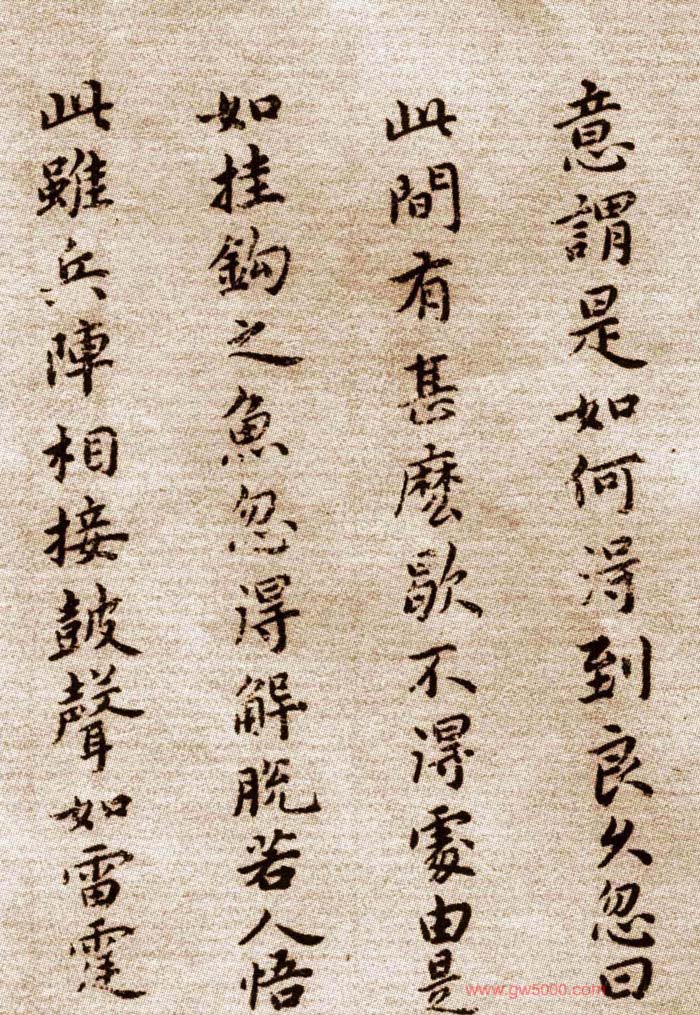 意謂是如何得到良久忽曰
此間有甚麼歇不得處由是
如挂鈎之魚忽得解脫若人悟
此雖兵陣相接鼓聲如雷霆
www.gw5000.com